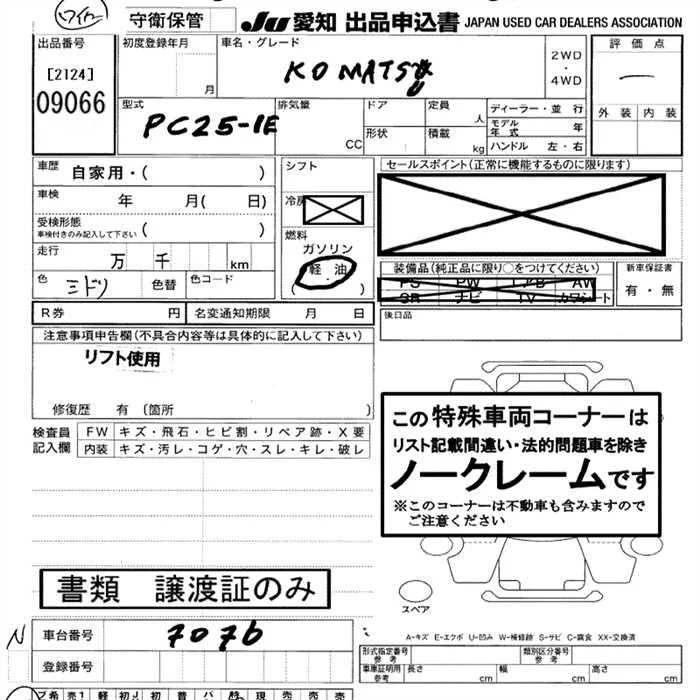 ワイヤー
守衛保管
JU 愛知 出品申込書 JAPAN USED CAR DEALERS ASSOCIATION
出品番号
[2124]
09066
初度登録年月
月
車名・グレード
KOMATSU
2WD
・
4WD
評価点
外装 内装
型式
PC25-1E
排気量
CC
ドア
形状
定員
人
積載
kg
ディーラー・並 行
モデル年式 年
ハンドル 左・右
車歴 自家用・( )
車検 年 月( 日)
受検形態
車検付きのみ記入して下さい ( )
走行 万 千 km
色 ミドリ 色替 色コード
シフト
冷房
燃料
ガソリン
軽・油
( )
セールスポイント(正常に機能するものに限ります)
装備品(純正品に限り○をつけてください)
PS PW エアB AW
SR ナビ TV カワシート
新車保証書
有・無
後日品
R券 円 名変通知期限 月 日
注意事項申告欄(不具合内容等は具体的に記入して下さい)
リフト使用
修復歴 有 (箇所 )
検査員
記入欄
FW キズ・飛石・ヒビ割・リペア跡・X要
内装 キズ・汚レ・コゲ・穴・スレ・キレ・破レ
この特殊車両コーナーは
リスト記載間違い・法的問題車を除き
ノークレームです
※このコーナーは不動車も含みますので
ご注意ください
書類 譲渡証のみ
スペア
N 車台番号 7076
登録番号
A-キズ E-エクボ U-凹み W-補修跡 S-サビ C-腐食 XX-交換済
形式指定番号
参考
類別区分番号
参考
車車証明用
参考
長さ cm 幅 cm 高さ cm